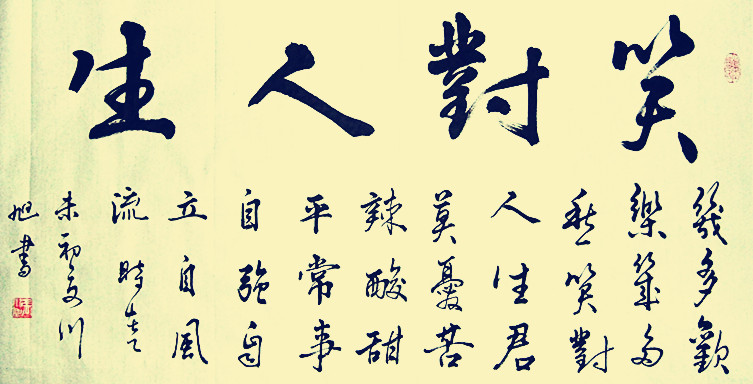 笑對人生
幾多歡
樂幾多
愁笑對
人生君
莫憂苦
辣酸甜
平常事
自強自
立自風
流時
未初川
旭書